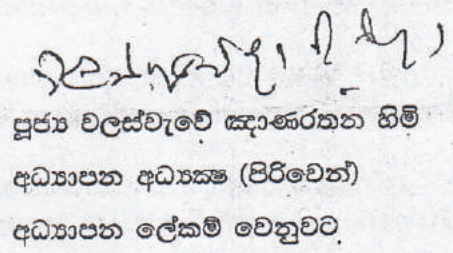 පූජ්‍ය වලස්වැවේ ඤාණරතන හිමි
අධ්‍යාපන අධ්‍යක්ෂ (පිරිවෙන්)
අධ්‍යාපන ලේකම් වෙනුවට